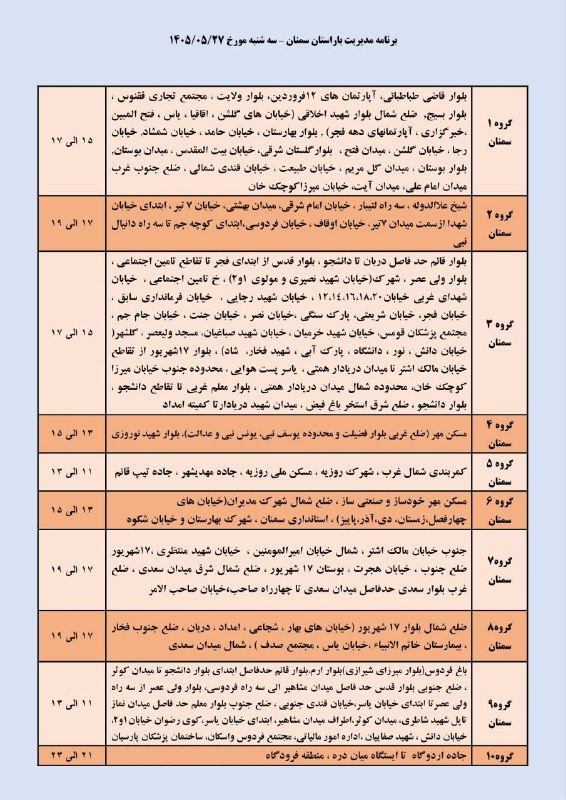 برنامه مدیریت بار استان سمنان - سه شنبه مورخ ۱۴۰۵/۰۵/۲۷
گروه ۱ سمنان
بلوار قاضی طباطبائی، آپارتمان های ۱۲فروردین، بلوار ولایت ، مجتمع تجاری ققنوس ،
بلوار بسیج، ضلع شمال بلوار شهید اخلاقی (خیابان های گلشن ، اقاقیا ، یاس ، فتح المبین
،خبرگزاری ، آپارتمانهای دهه فجر) . بلوار بهارستان ، خیابان حامد ، خیابان شمشاد، خیابان
رجا ، خیابان گلشن ، میدان فتح ، بلوارگلستان شرقی، خیابان بیت المقدس ، میدان بوستان،
بلوار بوستان ، میدان گل مریم ، خیابان طبیعت ، خیابان قندی شمالی ، ضلع جنوب غرب
میدان امام علی، میدان آیت، خیابان میرزاکوچک خان
۱۵ الی ۱۷
گروه ۲ سمنان
شیخ علاالدوله ، سه راه لتیبار ، خیابان امام شرقی، میدان بهشتی، خیابان ۷ تیر ، ابتدای خیابان
شهدا ازسمت میدان ۷تیر، خیابان اوقاف ، خیابان فردوسی،ابتدای کوچه جم تا سه راه دانیال
نبی
۱۷ الی ۱۹
گروه ۳ سمنان
بلوار قائم حد فاصل دربان تا دانشجو ، بلوار قدس از ابتدای فجر تا تقاطع تامین اجتماعی ،
بلوار ولی عصر ، شهرک(خیابان شهید نصیری و مولوی ۱و۲) ، خ تامین اجتماعی ، خیابان
شهدای غربی خیابان۱۲،۱۴،۱۶،۱۸،۲۰ ، خیابان شهید رجایی ، خیابان فرمانداری سابق ،
خیابان فجر، خیابان شریعتی، پارک سنگی ،خیابان نصر ، خیابان جنت ، خیابان جام جم ،
مجتمع پزشکان قومس، خیابان شهید خرمیان ، خیابان شهید صباغیان، مسجد ولیعصر ، گلشهر(
خیابان دانش ، نور ، دانشگاه ، پارک آبی ، شهید فخار، شاد) ، بلوار ۱۷شهریور از تقاطع
خیابان مالک اشتر تا میدان دریادار همتی ، یاسر پست هوایی ، محدوده جنوب خیابان میرزا
کوچک خان، محدوده شمال میدان دریادار همتی ، بلوار معلم غربی تا تقاطع دانشجو ،
بلوار دانشجو ، ضلع شرق استخر باغ فیض ، میدان شهید دریادارتا کمیته امداد
۱۵ الی ۱۷
گروه ۴ سمنان
مسکن مهر (ضلع غربی بلوار فضیلت و محدوده یوسف نبی، یونس نبی و عدالت)، بلوار شهید نوروزی
۱۳ الی ۱۵
گروه ۵ سمنان
کمربندی شمال غرب ، شهرک روزیه ، مسکن ملی روزیه ، جاده مهدیشهر ، جاده تیپ قائم
۱۱ الی ۱۳
گروه ۶ سمنان
مسکن مهر خودساز و صنعتی ساز ، ضلع شمال شهرک مدیران(خیابان های
چهارفصل،زمستان، دی،آذر،پاییز) ، استانداری سمنان ، شهرک بهارستان و خیابان شکوه
۱۳ الی ۱۵
گروه۷ سمنان
جنوب خیابان مالک اشتر ، شمال خیابان امیرالمومنین ، خیابان شهید منتظری ،۱۷شهریور
ضلع جنوب ، خیابان هجرت ، بوستان ۱۷ شهریور ، ضلع شمال شرق میدان سعدی ، ضلع
غرب بلوار سعدی حدفاصل میدان سعدی تا چهارراه صاحب،خیابان صاحب الامر
۱۷ الی ۱۹
گروه۸ سمنان
ضلع شمال بلوار ۱۷ شهریور (خیابان های بهار ، شجاعی ، امداد ، دربان ، ضلع جنوب فخار
، بیمارستان خاتم الانبیاء ،خیابان یاس ، مجتمع صدف ) ، شمال میدان سعدی
۱۷ الی ۱۹
گروه۹ سمنان
باغ فردوس(بلوار میرزای شیرازی)بلوار ارم،بلوار قائم حدفاصل ابتدای بلوار دانشجو تا میدان کوثر
، ضلع جنوبی بلوار قدس حد فاصل میدان مشاهیر الی سه راه فردوسی، بلوار ولی عصر از سه راه
ولی عصرتا ابتدای خیابان یاسر،خیابان قندی جنوبی ، ضلع جنوب بلوار معلم حد فاصل میدان نماز
تاپل شهید شاطری، میدان کوثر،اطراف میدان مشاهیر، ابتدای خیابان یاسر،کوی رضوان خیابان ۱و۲،
خیابان دانش ، شهید صفاییان ،اداره امور مالیاتی، مجتمع فردوس واسکان، ساختمان پزشکان پارسیان
۱۱ الی ۱۳
گروه۱۰
جاده اردوگاه تا ایستگاه میان دره ، منطقه فرودگاه
۲۱ الی ۲۳